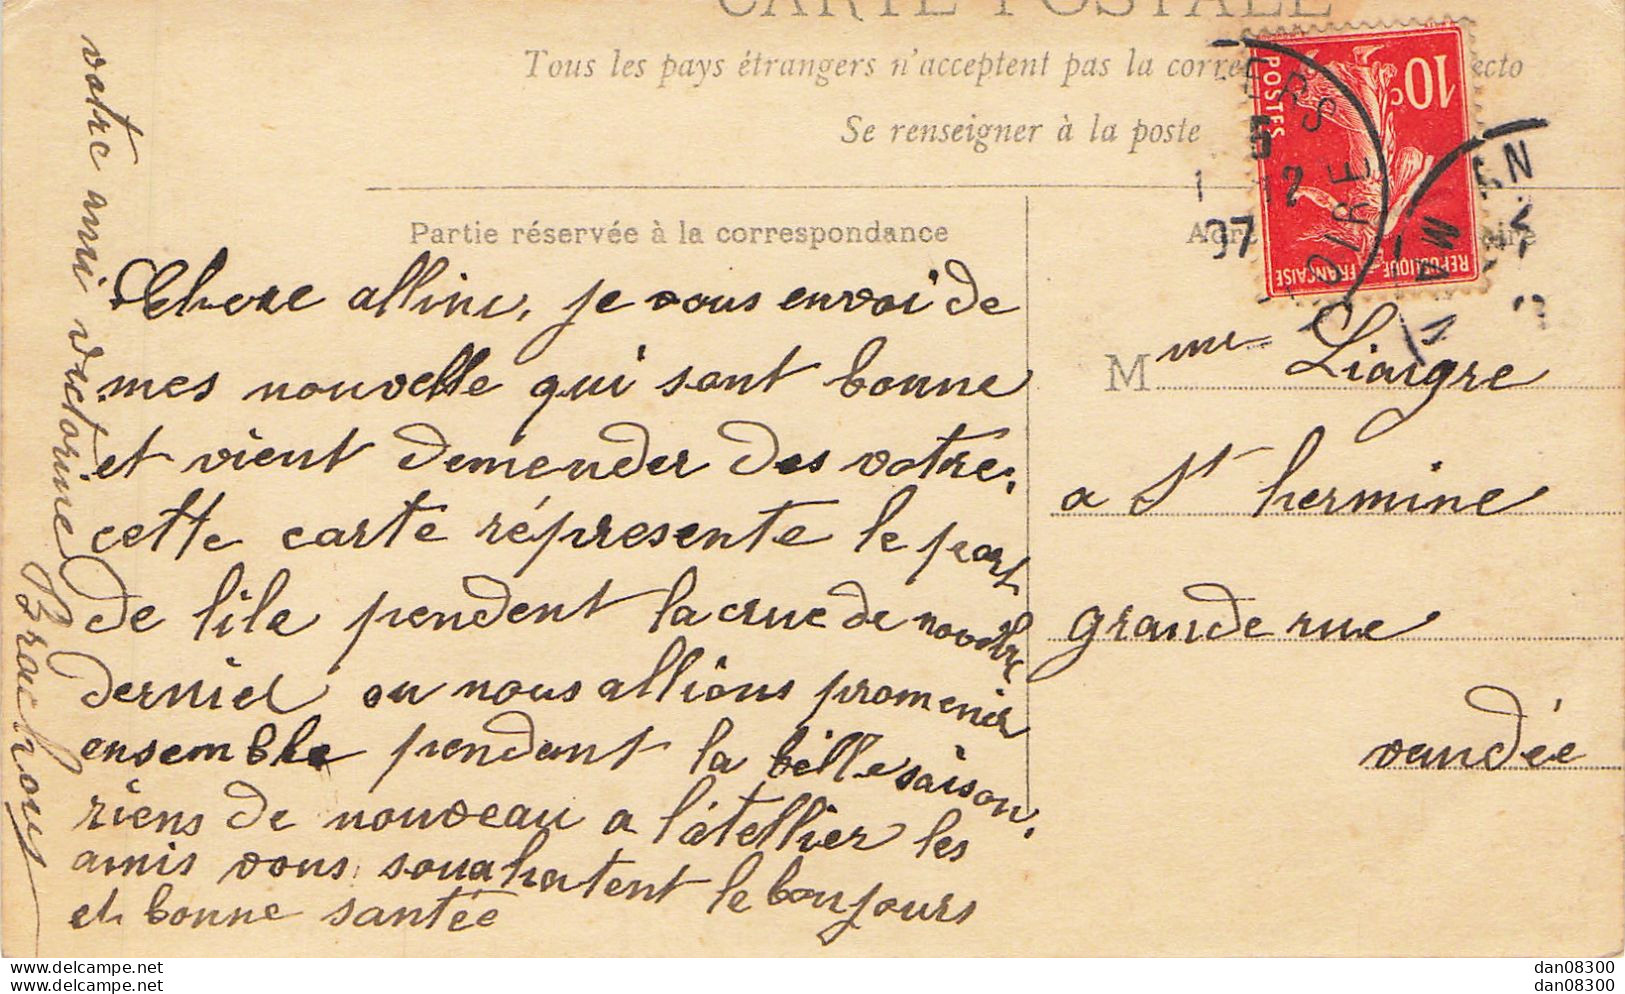 CARTE POSTALE
Tous les pays étrangers n'acceptent pas la corre ecto
Se renseigner à la poste
10c
POSTES
REPUBLIQUE FRANÇAISE
5
1 12
07
LOIRE
Partie réservée à la correspondance
Chere alline, je vous envoi de
mes nouvelle qui sont bonne
et vient demender des votre.
cette carte répresente le port
de lile pendent la crue de novembre
dernier ou nous allions promenir
ensemble pendant la bille saison.
riens de nouveau a l'atellier les
amis vous souahatent le boujours
et bonne santée
votre ami victorine
Brachouy
Mme Liaigre
a St hermine
grande rue
vandée
dan08300
dan08300
www.delcampe.net
www.delcampe.net